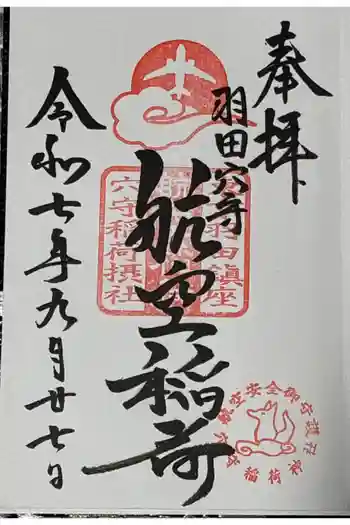 奉拝
羽田穴守
航空稲荷
令和七年九月廿七日
羽田鎮座
穴守稲荷摂社
航空安全御守護
穴守稲荷神社